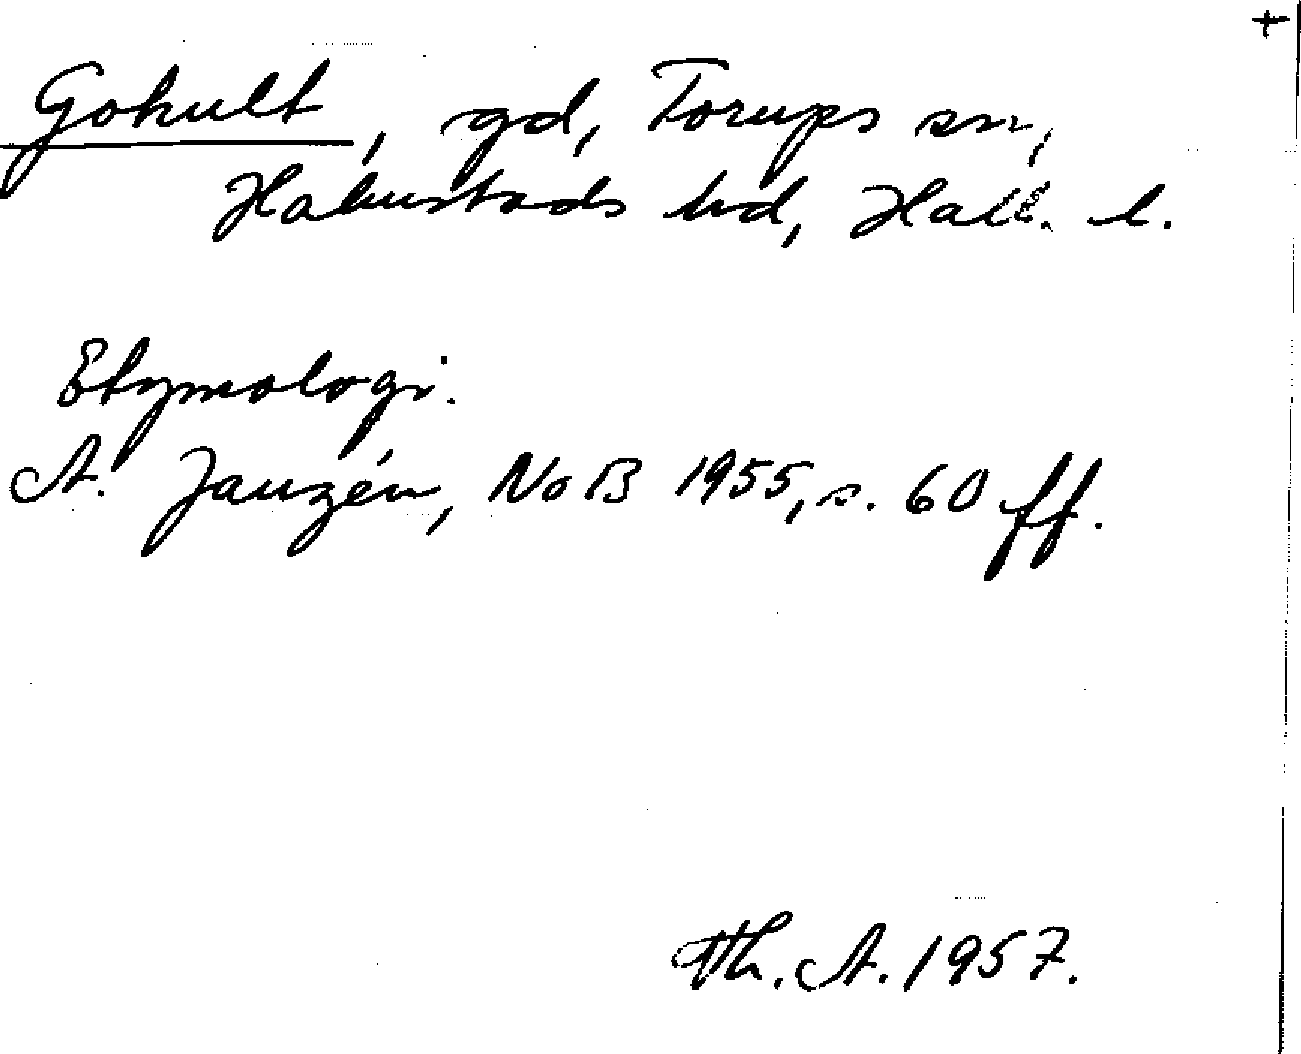 +
Gohult, gd, Torups sn,
Halmstads hd, Hall. l.
Etymologi.
A. Janzén, NoB 1955, s. 60 ff.
Th. A. 1957.